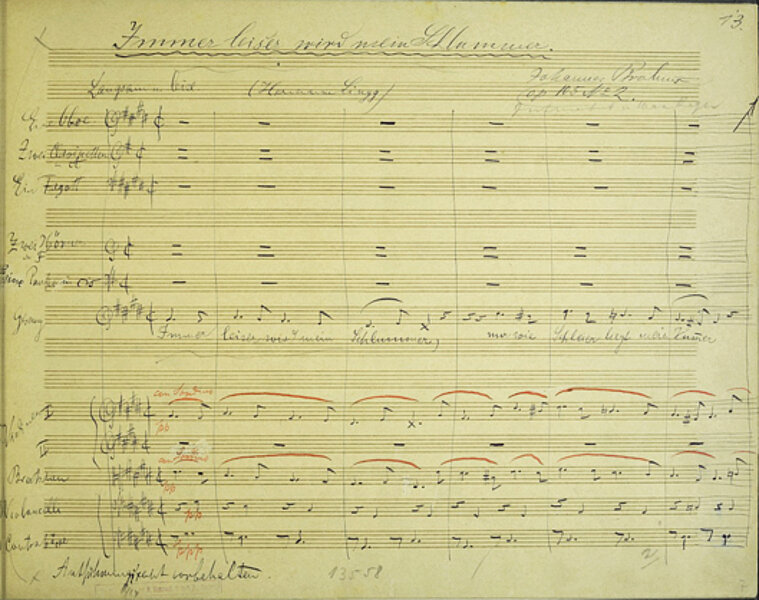 13.
Immer leiser wird mein Schlummer.
Langsam u. leis. (Hermann Lingg) Johannes Brahms
op. 105 No 2.
Ein Oboe
Zwei Clarinetten
Ein Fagott
Zwei Hörner
in F
Eine Pauke in Cis
Gesang
Immer leiser wird mein Schlummer, nur wie Schleier liegt mein Kummer
con Sordino
Violinen I
pp
II
con Sordino
Bratschen
pp
Violoncelli
pp
Contrabässe
ppp
x Aufführungsrecht vorbehalten.
13558